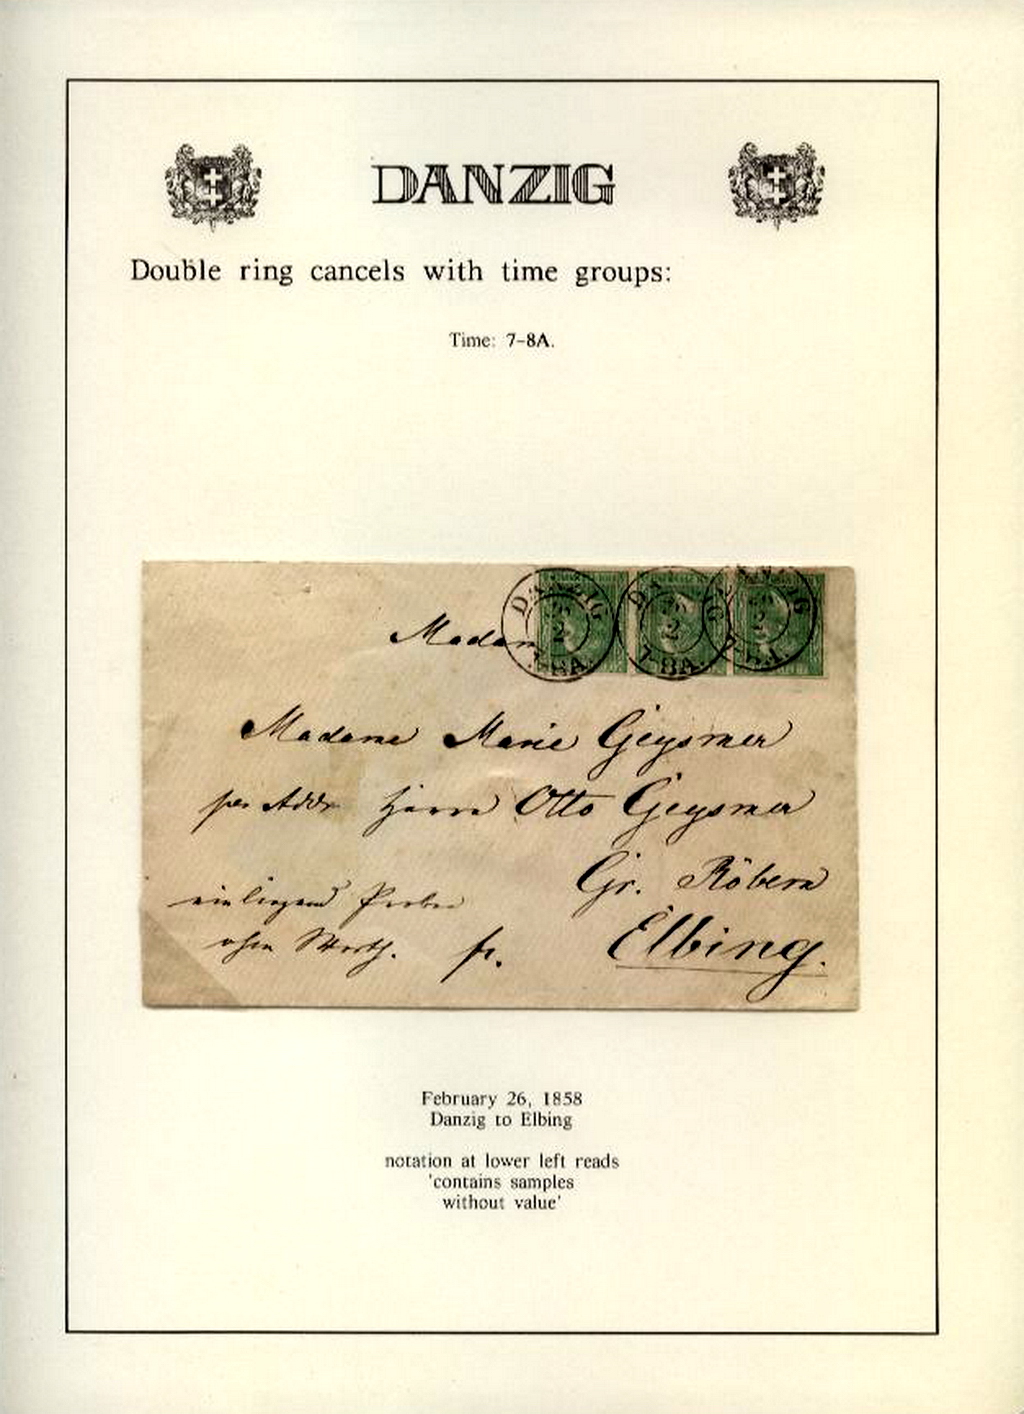 DANZIG
Double ring cancels with time groups:
Time: 7-8A.
DANZIG
26
2
7-8A.
DANZIG
26
2
7-8A.
DANZIG
26
2
7-8A.
Madam
Madame Marie Geysmer
per Addr Herrn Otto Geysmer
Gr. Röbern
einliegend Proben
ohne Werth. fr.
Elbing.
February 26, 1858
Danzig to Elbing
notation at lower left reads
'contains samples
without value'